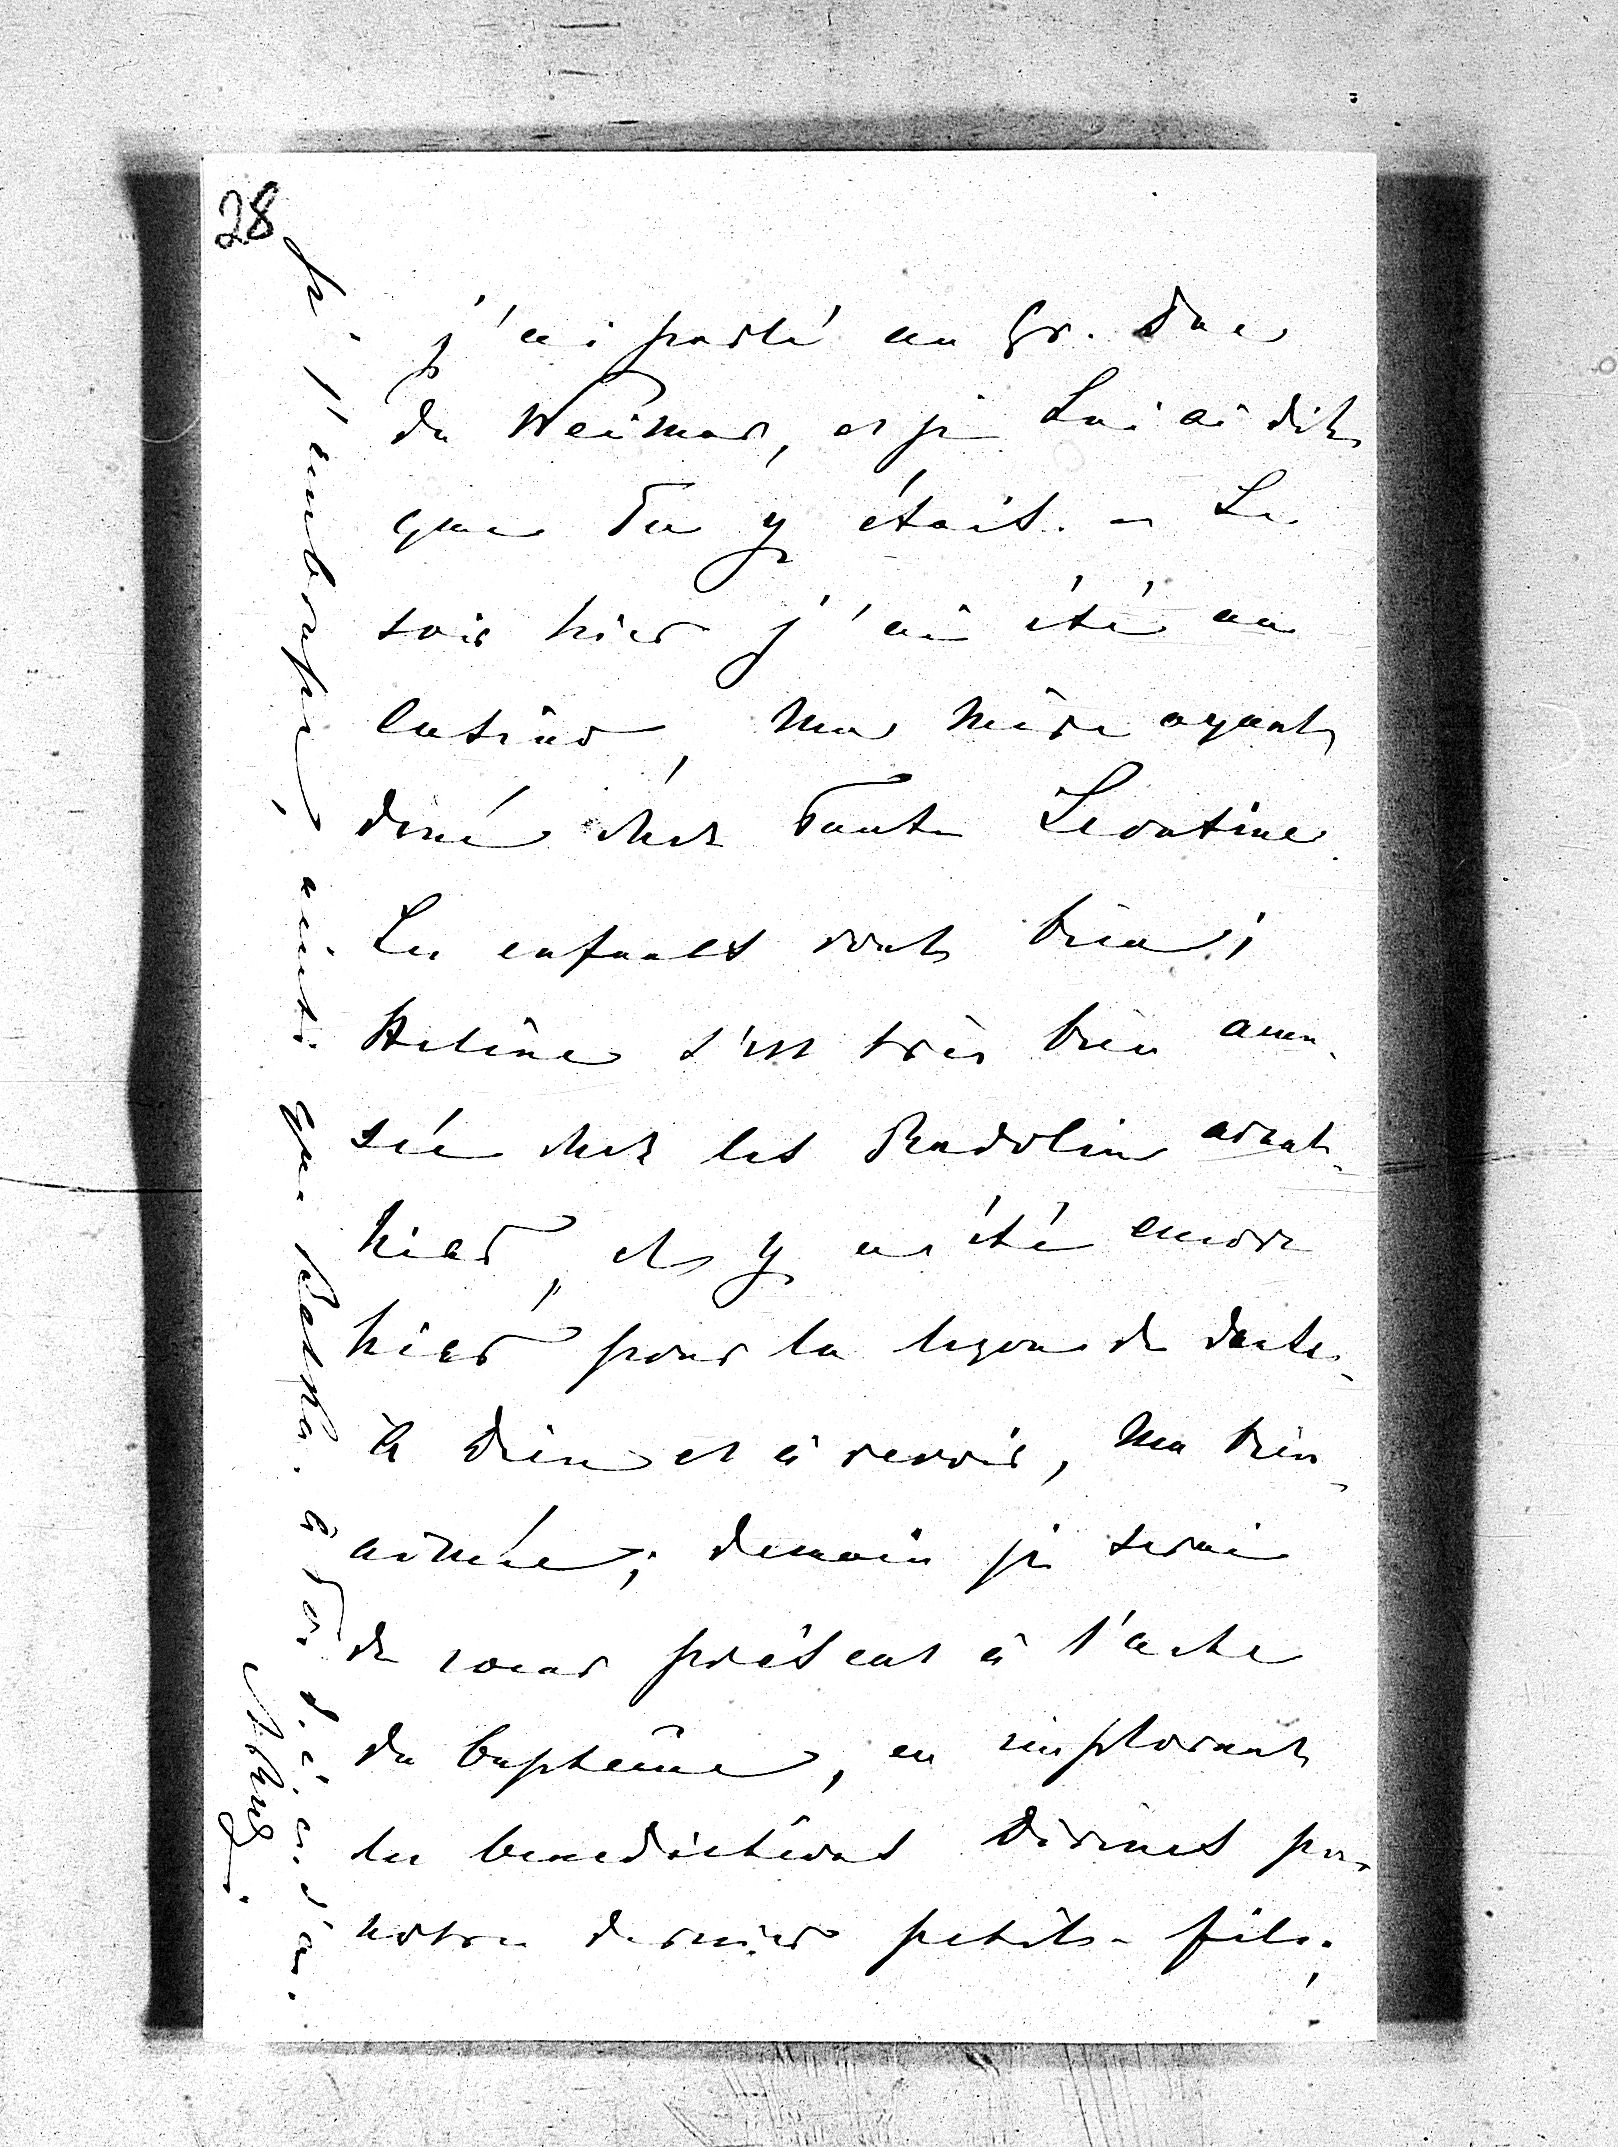 28
j'ai parlé au Gr. Duc
de Weimar, et je Lui ai dit
que Tu y étais. - Le
soir hier j'ai été au
Casino, Ma Mère ayant
diné chez Tante Leontine.
Les enfants vont bien;
Hélène s'est très bien amu-
sée chez les Radolin avant-
hier, et y a été encore
hier pour la leçon de danse.
A Dieu et à revoir, Ma bien-
aimée; demain je serai
de coeur présent à l'acte
du baptême, en implorant
les benedictions Divines pour
notre dernier petit-fils;
je T'embrasse, ainsi que à Toi